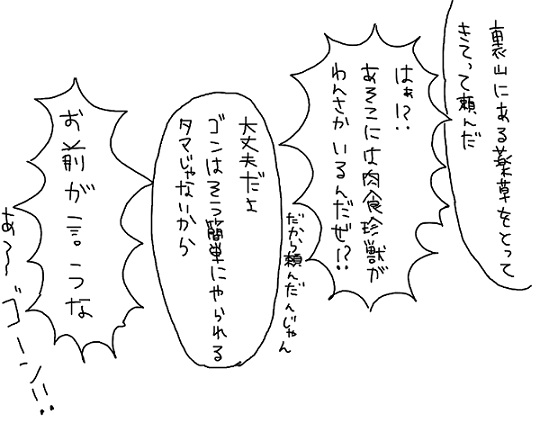 裏山にある薬草をとって
きてって頼んだ
はぁ!?
あそこには肉食珍獣が
わんさかいるんだぜ!?
だから頼んだんじゃん
大丈夫だよ
ゴンはそう簡単にやられる
タマじゃないから
お前が言うな
あ〜〜ゴーン!!